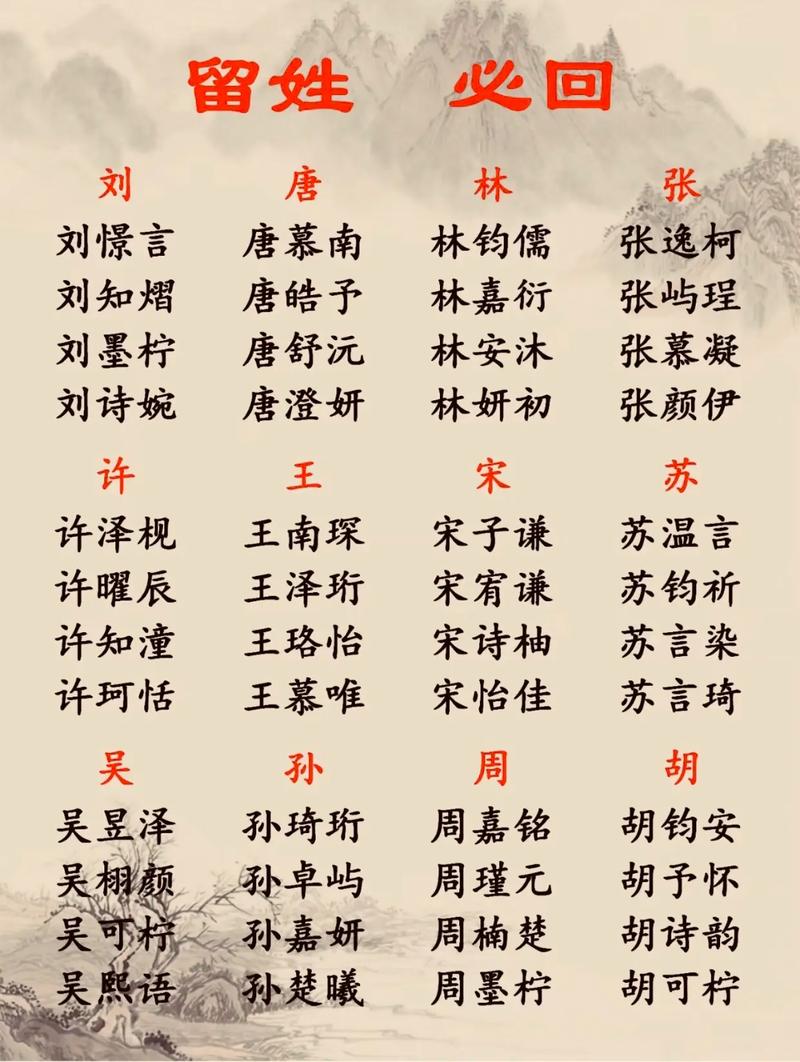 留姓 必回
刘 唐 林 张
刘憬言 唐慕南 林钧儒 张逸柯
刘知熠 唐皓予 林嘉衍 张屿珵
刘墨柠 唐舒沅 林安沐 张慕凝
刘诗婉 唐澄妍 林妍初 张颜伊
许 王 宋 苏
许泽枧 王南琛 宋子谦 苏温言
许曜辰 王泽珩 宋宥谦 苏钧祈
许知潼 王珞怡 宋诗柚 苏言染
许珂恬 王慕唯 宋怡佳 苏言琦
吴 孙 周 胡
吴昱泽 孙琦珩 周嘉铭 胡钧安
吴栩颜 孙卓屿 周瑾元 胡予怀
吴可柠 孙嘉妍 周楠楚 胡诗韵
吴熙语 孙楚曦 周墨柠 胡可柠